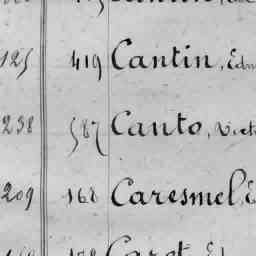 125 419 Cantin, Edm
238 587 Canto, Vict
209 168 Caresmel, E